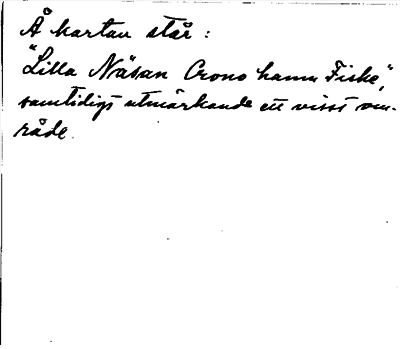 Å kartan står:
"Lilla Näsan Crono hamn Fiske",
samtidigt utmärkande ett visst om-
råde.